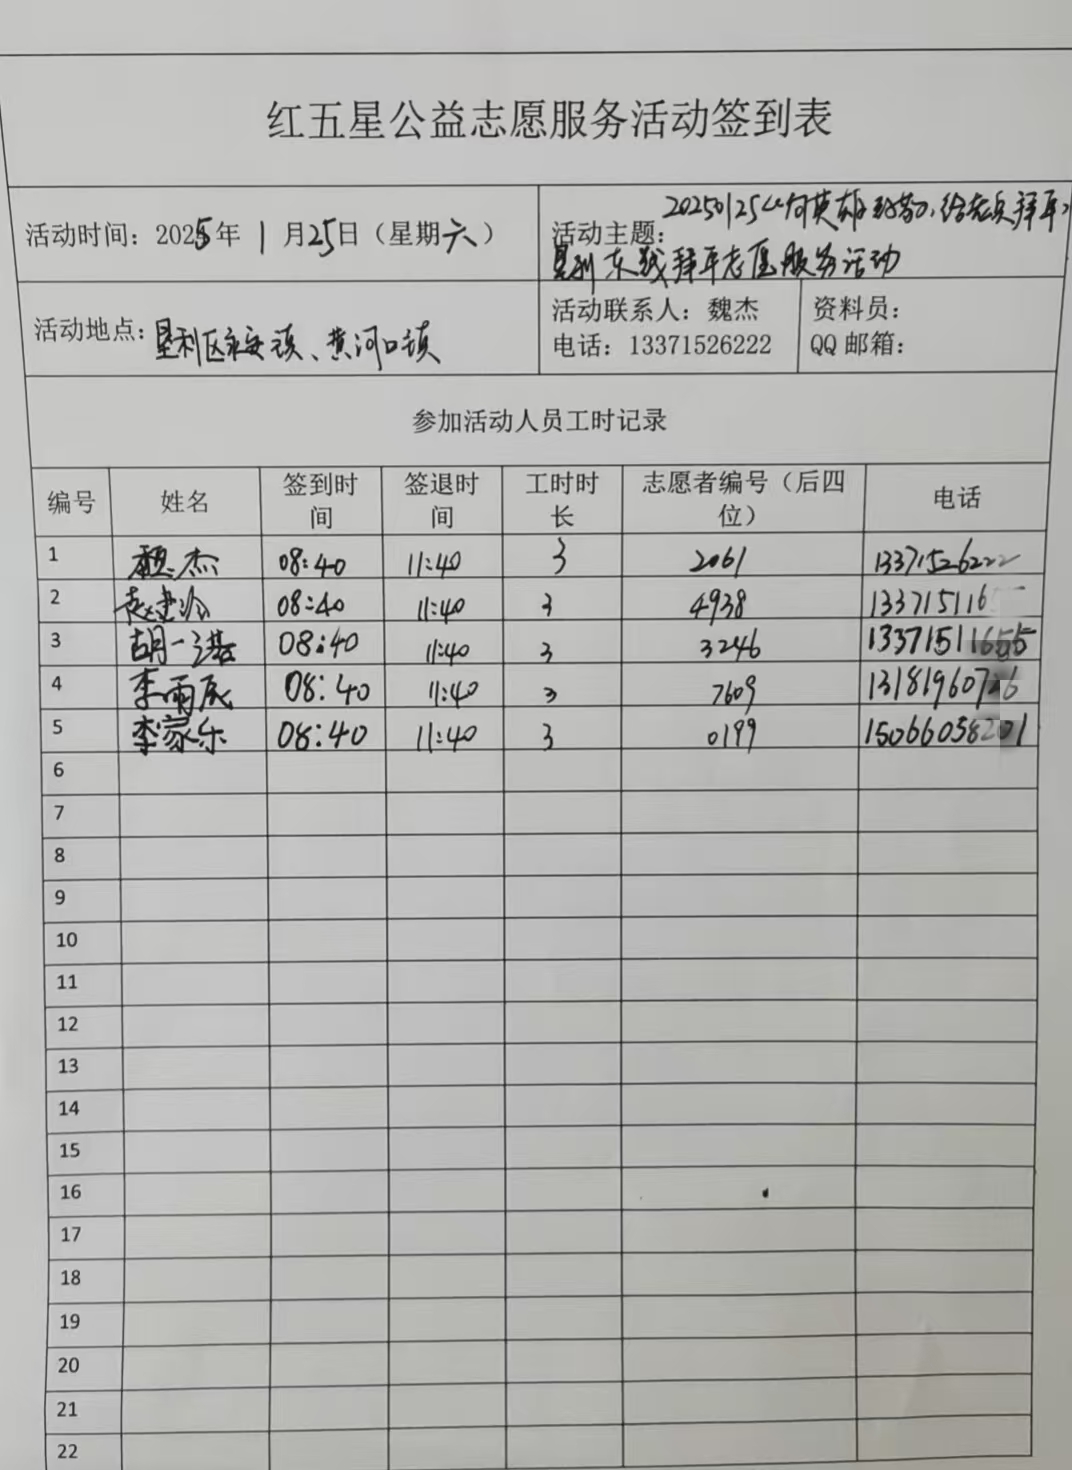 红五星公益志愿服务活动签到表
活动时间：2025年 1 月25日（星期六）
活动主题：20250125“向英雄致敬，给老兵拜年”
垦利东线拜年志愿服务活动
活动地点：垦利区永安镇、黄河口镇
活动联系人：魏杰
电话：13371526222
资料员：
QQ 邮箱：
参加活动人员工时记录
编号 姓名 签到时间 签退时间 工时时长 志愿者编号（后四位） 电话
1 魏杰 08:40 11:40 3 2061 13371526222
2 赵建 08:40 11:40 3 4938 133715116
3 胡一湛 08:40 11:40 3 3246 13371511655
4 李雨辰 08:40 11:40 3 7609 131819607
5 李家乐 08:40 11:40 3 0199 15066058201
6
7
8
9
10
11
12
13
14
15
16
17
18
19
20
21
22